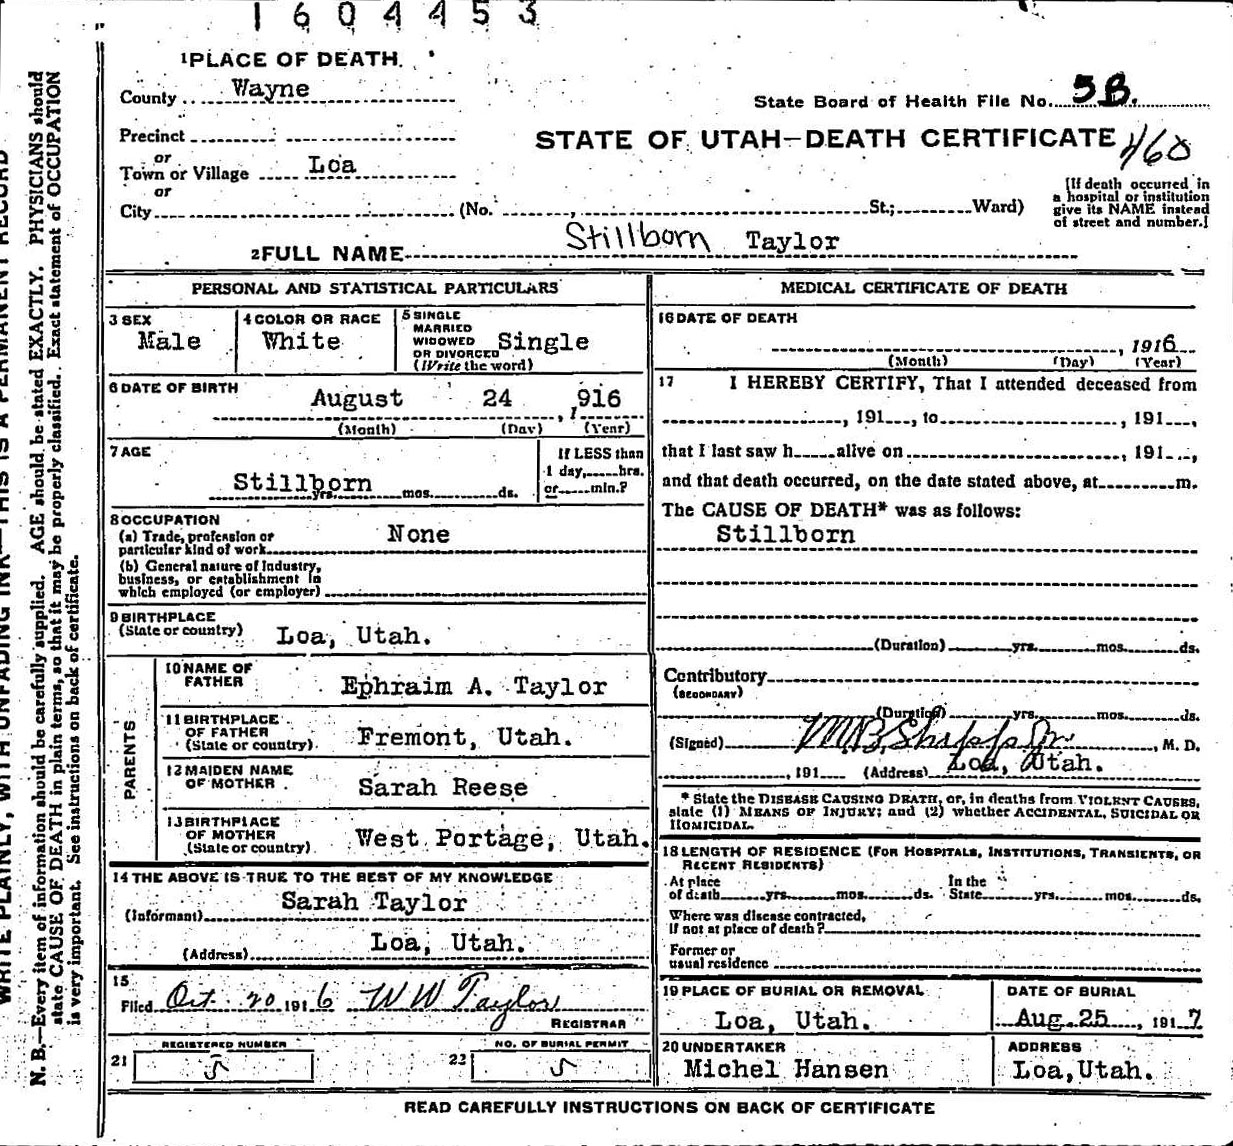 1604453
1 PLACE OF DEATH.
County Wayne
State Board of Health File No. 5B.
Precinct
STATE OF UTAH—DEATH CERTIFICATE 460
or
Town or Village Loa
or
City (No. , St.; Ward)
[If death occurred in
a hospital or institution
give its NAME instead
of street and number.]
2 FULL NAME Stillborn Taylor
PERSONAL AND STATISTICAL PARTICULARS
3 SEX
Male
4 COLOR OR RACE
White
5 SINGLE
MARRIED
WIDOWED
OR DIVORCED
(Write the word)
Single
6 DATE OF BIRTH
August 24, 1916
(Month) (Day) (Year)
7 AGE
Stillborn
yrs. mos. ds.
If LESS than
1 day, hrs.
or min.?
8 OCCUPATION
(a) Trade, profession or
particular kind of work None
(b) General nature of Industry,
business, or establishment in
which employed (or employer)
9 BIRTHPLACE
(State or country) Loa, Utah.
PARENTS
10 NAME OF
FATHER Ephraim A. Taylor
11 BIRTHPLACE
OF FATHER
(State or country) Fremont, Utah.
12 MAIDEN NAME
OF MOTHER Sarah Reese
13 BIRTHPLACE
OF MOTHER
(State or country) West Portage, Utah.
14 THE ABOVE IS TRUE TO THE BEST OF MY KNOWLEDGE
(Informant) Sarah Taylor
(Address) Loa, Utah.
15
Filed Oct 20 1916 WW Taylor
REGISTRAR
REGISTERED NUMBER
21 5
NO. OF BURIAL PERMIT
22 5
MEDICAL CERTIFICATE OF DEATH
16 DATE OF DEATH
, 1916
(Month) (Day) (Year)
17 I HEREBY CERTIFY, That I attended deceased from
, 191 , to , 191 ,
that I last saw h alive on , 191 ,
and that death occurred, on the date stated above, at m.
The CAUSE OF DEATH* was as follows:
Stillborn
(Duration) yrs. mos. ds.
Contributory
(SECONDARY)
(Duration) yrs. mos. ds.
(Signed) , M. D.
, 191 (Address) Loa, Utah.
* State the DISEASE CAUSING DEATH, or, in deaths from VIOLENT CAUSES,
state (1) MEANS OF INJURY; and (2) whether ACCIDENTAL, SUICIDAL OR
HOMICIDAL.
18 LENGTH OF RESIDENCE (FOR HOSPITALS, INSTITUTIONS, TRANSIENTS, OR
RECENT RESIDENTS)
At place
of death yrs. mos. ds.
In the
State yrs. mos. ds.
Where was disease contracted,
if not at place of death?
Former or
usual residence
19 PLACE OF BURIAL OR REMOVAL
Loa, Utah.
DATE OF BURIAL
Aug. 25, 1917
20 UNDERTAKER
Michel Hansen
ADDRESS
Loa, Utah.
READ CAREFULLY INSTRUCTIONS ON BACK OF CERTIFICATE
WRITE PLAINLY, WITH UNFADING INK—THIS IS A PERMANENT RECORD
N. B.—Every item of information should be carefully supplied. AGE should be stated EXACTLY. PHYSICIANS should
state CAUSE OF DEATH in plain terms, so that it may be properly classified. Exact statement of OCCUPATION
is very important. See instructions on back of certificate.